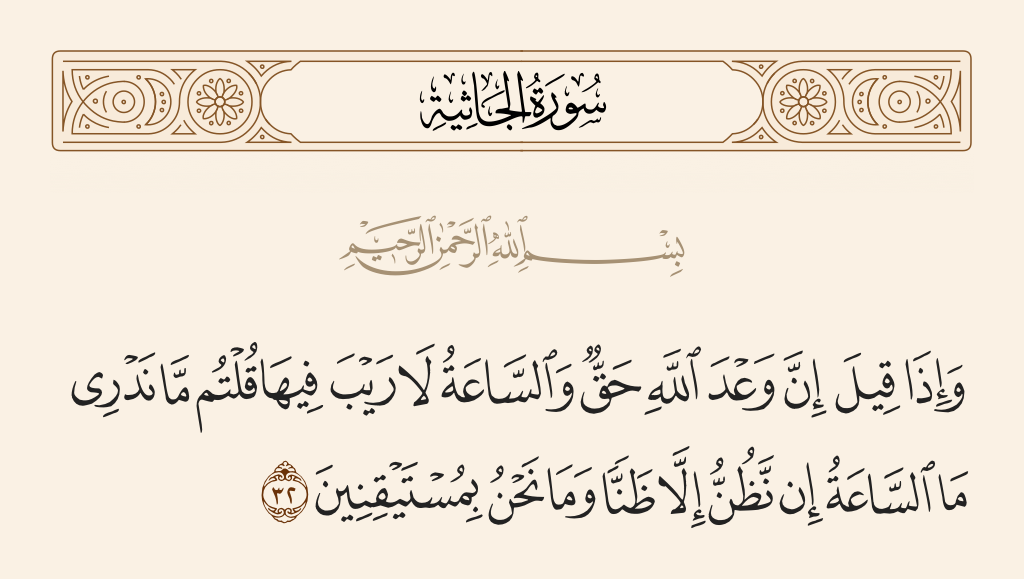 سُورَةُ الجَاثِيَةِ
بِسْمِ ٱللَّهِ ٱلرَّحْمَٰنِ ٱلرَّحِيمِ
وَإِذَا قِيلَ إِنَّ وَعْدَ ٱللَّهِ حَقٌّ وَٱلسَّاعَةُ لَا رَيْبَ فِيهَا قُلْتُم مَّا نَدْرِى
مَا ٱلسَّاعَةُ إِن نَّظُنُّ إِلَّا ظَنًّا وَمَا نَحْنُ بِمُسْتَيْقِنِينَ ٣٢